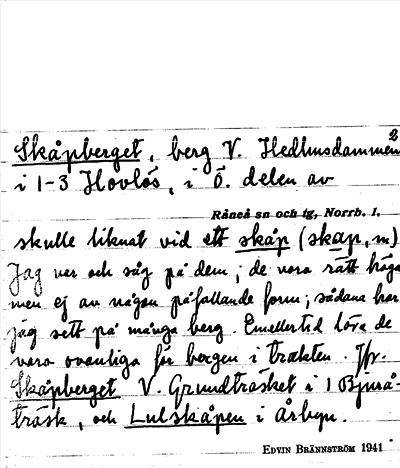 2
Skåpberget, berg V. Hedhusdammen
i 1-3 Hovlös, i Ö. delen av
Råneå sn och tg, Norrb. l.
skulle liknat vid ett skåp (skap, m)
Jag var och såg på dem; de vora rätt höga
men ej av någon påfallande form; sådana har
jag sett på många berg. Emellertid löra de
vara ovanliga för bergen i trakten. Jfr.
Skåpberget V. Grundträsket i 1 Bjurå-
träsk, och Lulskåpen i Årbyn.
EDVIN BRÄNNSTRÖM 1941